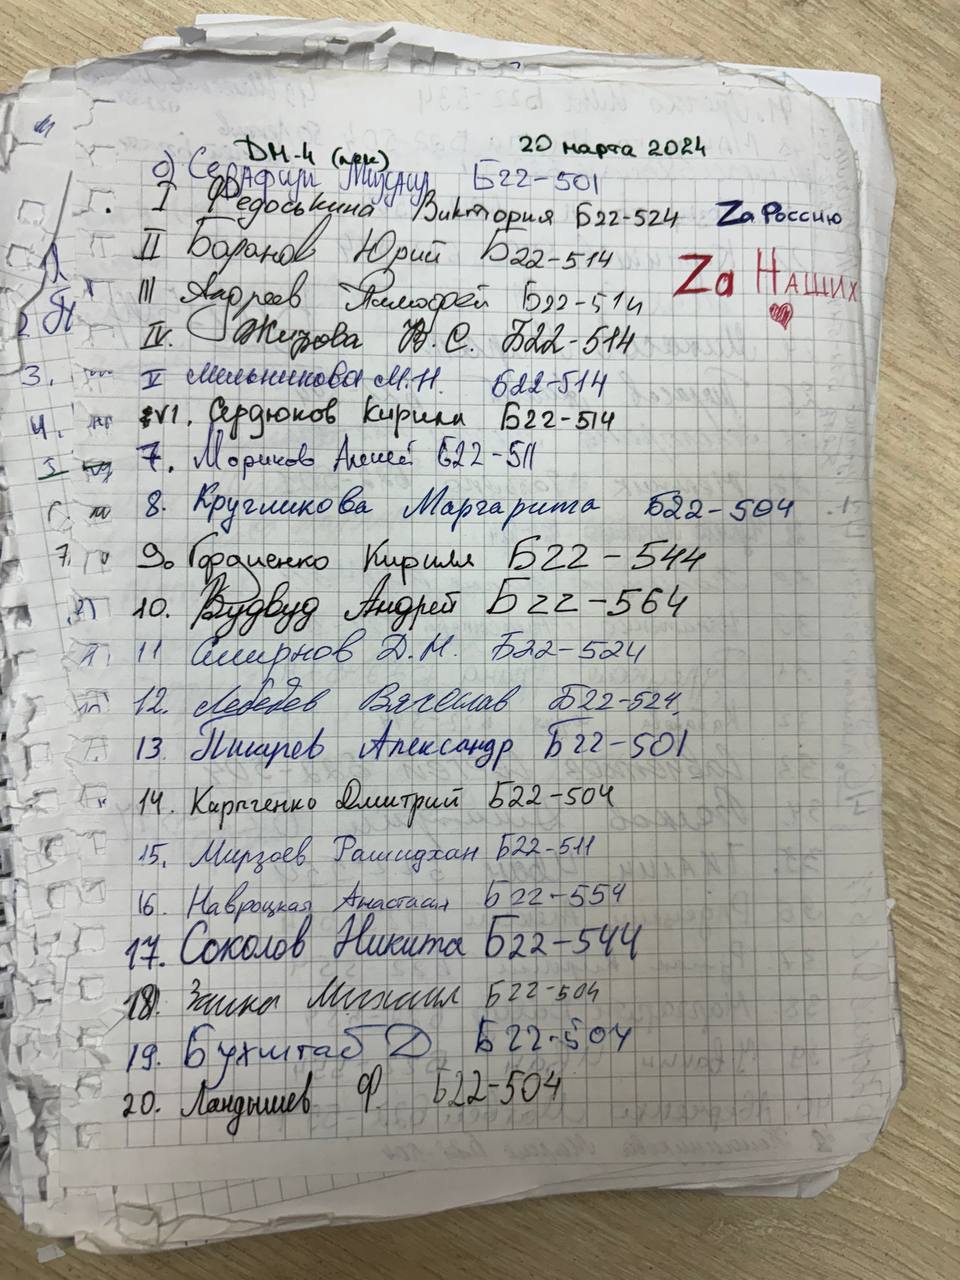 ДМ-4 (лек) 20 марта 2024
0) Серафим Михаил Б22-501
I Федоськина Виктория Б22-524 Za Россию
II Баранов Юрий Б22-514
Za Наших
III Андреев Тимофей Б22-514
IV. Жизова В.С. Б22-514
V Мельникова М.Н. Б22-514
VI. Сердюков Кирилл Б22-514
7. Мориков Алексей Б22-511
8. Кругликова Маргарита Б22-504
9. Гордиенко Кирилл Б22-544
10. Вудвуд Андрей Б22-564
11 Смирнов Д.М. Б22-524
12. Лебедев Вячеслав Б22-524
13. Писарев Александр Б22-501
14. Карпченко Дмитрий Б22-504
15. Мирзоев Рашидхан Б22-511
16. Навроцкая Анастасия Б22-554
17. Соколов Никита Б22-544
18. Заика Михаил Б22-504
19. Бухштаб Д Б22-504
20. Ландышев Ф. Б22-504